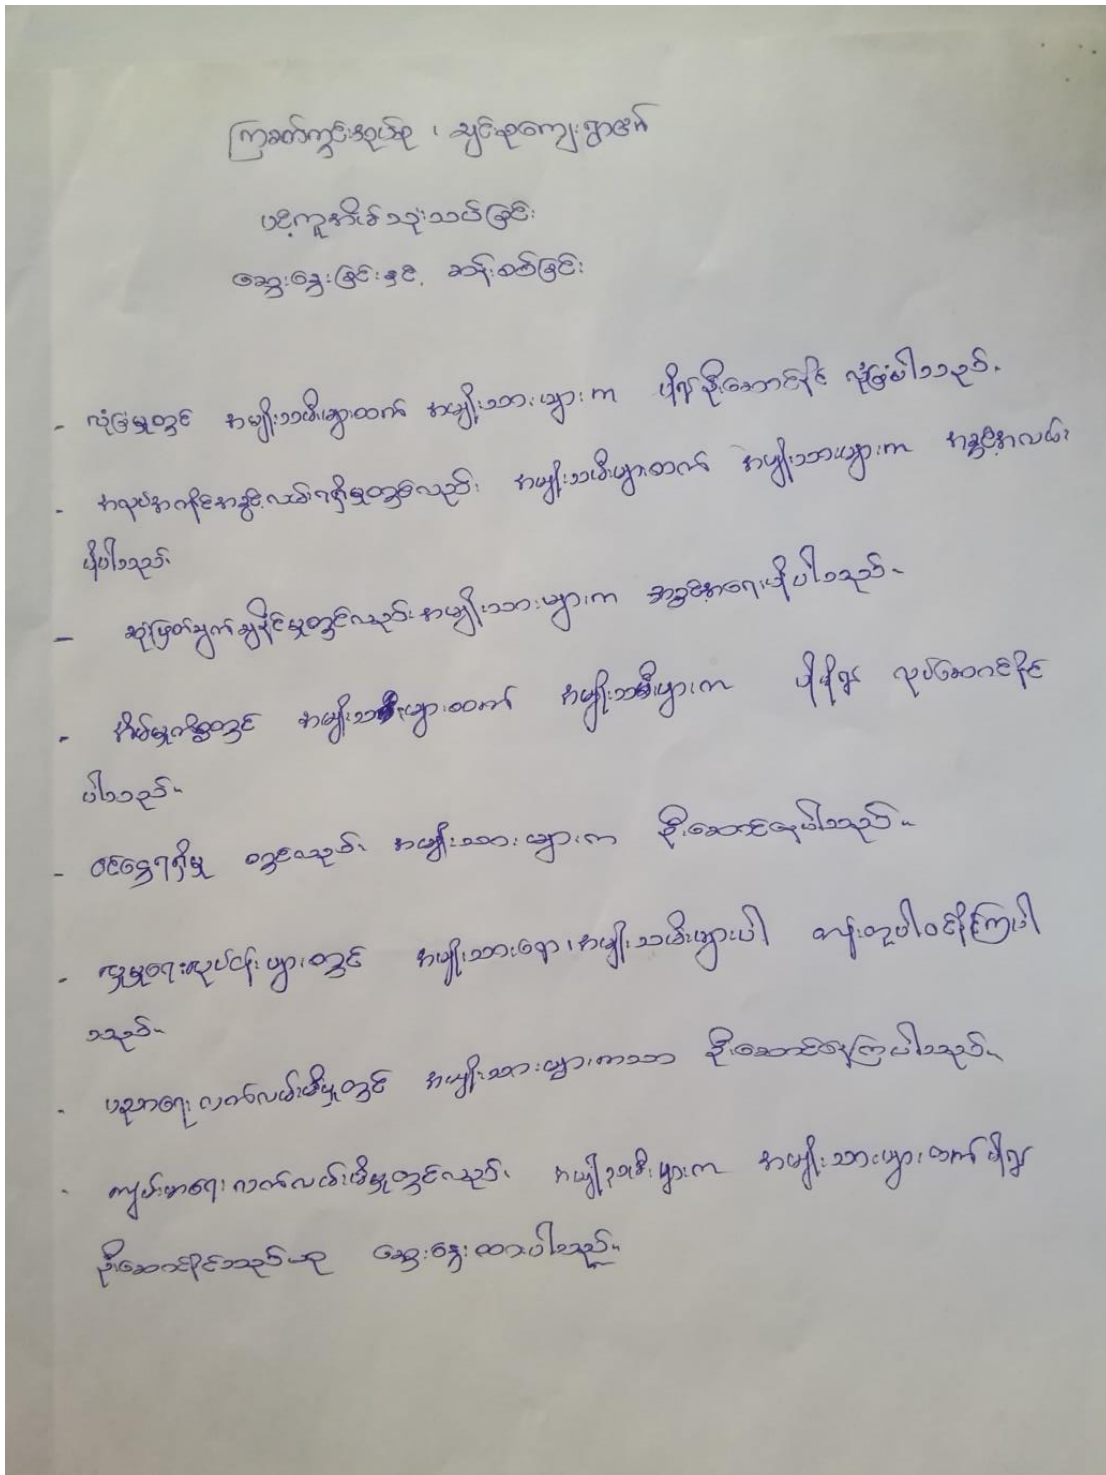 ကြခတ်ကွင်းအုပ်စု ၊ ချင်းစုကျေးရွာ၏
ပင့်ကူအိမ်သုံးသပ်ခြင်း
ဆွေးနွေးခြင်းနှင့် ဆန်းစစ်ခြင်း
- လုံခြုံမှုတွင် အမျိုးသမီးများထက် အမျိုးသားများက ပို၍ဦးဆောင်နိုင် လုံခြုံပါသည်။
- အလုပ်အကိုင်အခွင့်လမ်းရရှိမှုတွင်လည်း အမျိုးသမီးများထက် အမျိုးသားများက အခွင့်အလမ်း
ပိုပါသည်။
- ဆုံးဖြတ်ချက်ချနိုင်မှုတွင်လည်းအမျိုးသားများက အခွင့်အရေးပိုပါသည်။
- အိမ်မှုကိစ္စတွင် အမျိုးသမီးများထက် အမျိုးသမီးများက ပိုမို၍ လုပ်ဆောင်နိုင်
ပါသည်။
- ဝင်ငွေရရှိမှု တွင်လည်း အမျိုးသားများက ဦးဆောင်မှုပါသည်။
- လူမှုရေးလုပ်ငန်းများတွင် အမျိုးသားရော၊အမျိုးသမီးများပါ တန်းတူပါဝင်နိုင်ကြပါ
သည်။
- ပညာရေးလက်လမ်းမီမှုတွင် အမျိုးသားများကသာ ဦးဆောင်နေကြပါသည်။
- ကျမ်းမာရေးလက်လမ်းမီမှုတွင်လည်း အမျိုးသမီးများက အမျိုးသားများထက်ပို၍
ဦးဆောင်နိုင်သည်ဟု ဆွေးနွေးထားပါသည်။